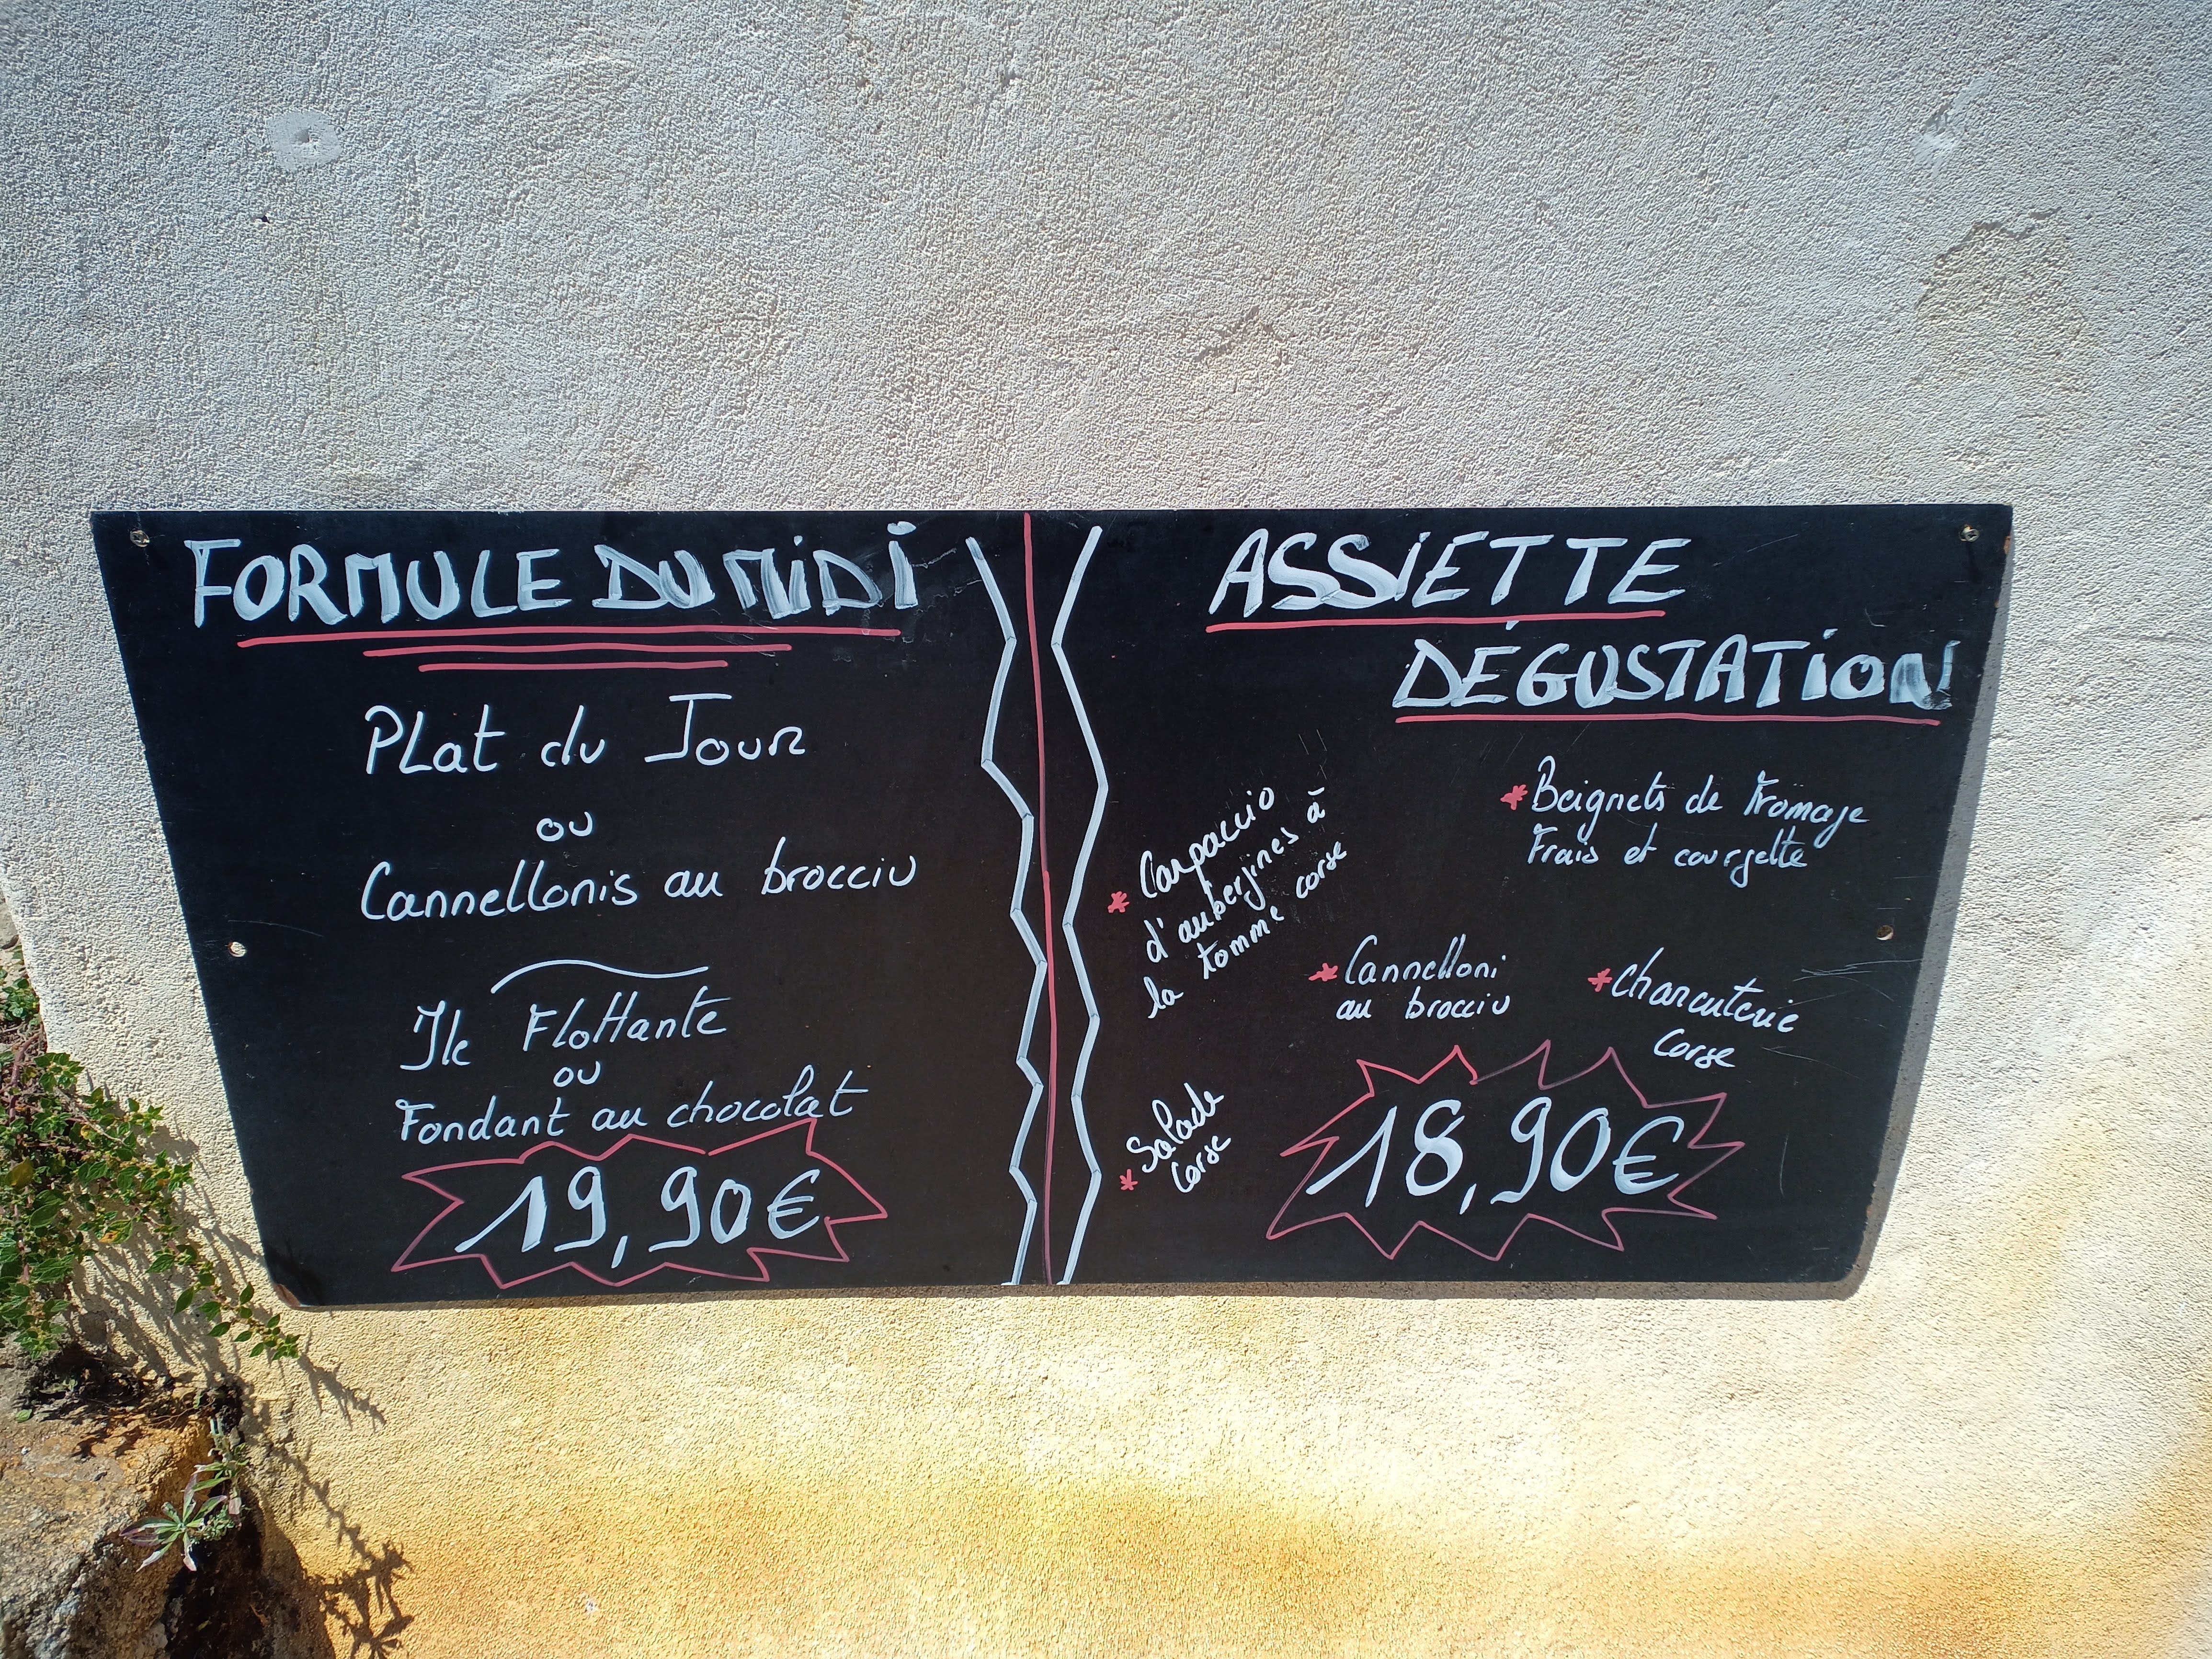 FORMULE DU MiDi
PLat du Jour
ou
Cannellonis au brocciu
Ile Flottante
ou
Fondant au chocolat
19,90€
ASSiETTE
DÉGUSTATiON
* Beignets de Fromage
Frais et courgette
* Carpaccio
d'aubergines à
la tomme corse
* Cannelloni
au brocciu
* Charcuterie
Corse
* Salade
Corse
18,90€